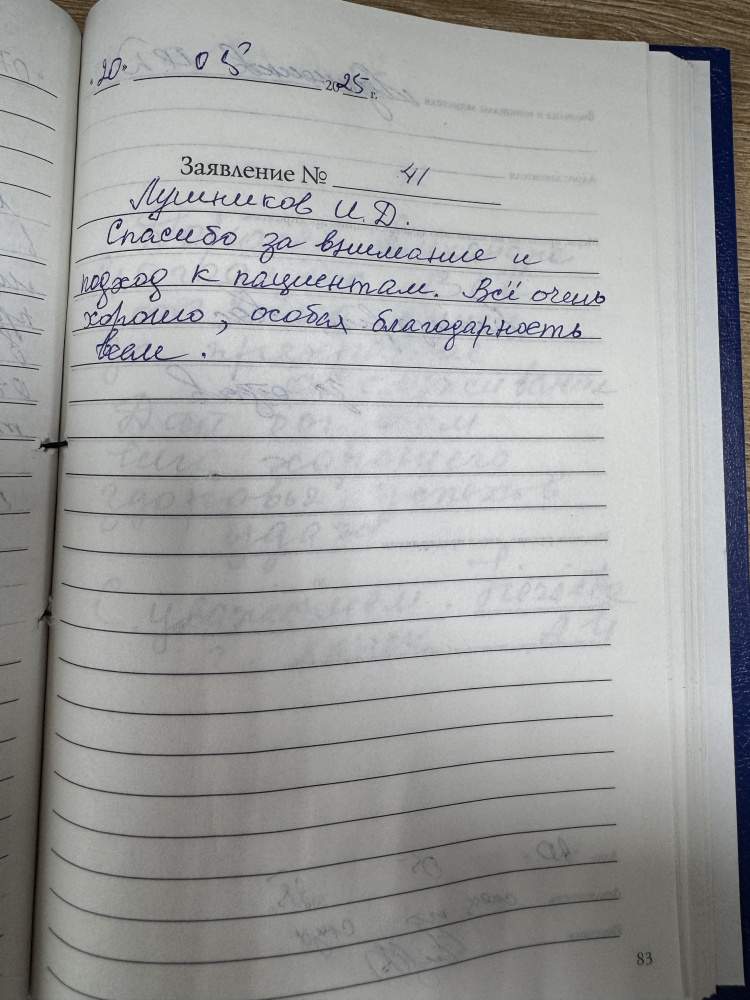 «20» 05 2025 г.
Заявление № 41
Лушников И.Д.
Спасибо за внимание и
подход к пациентам. Всё очень
хорошо, особая благодарность
всем.
83